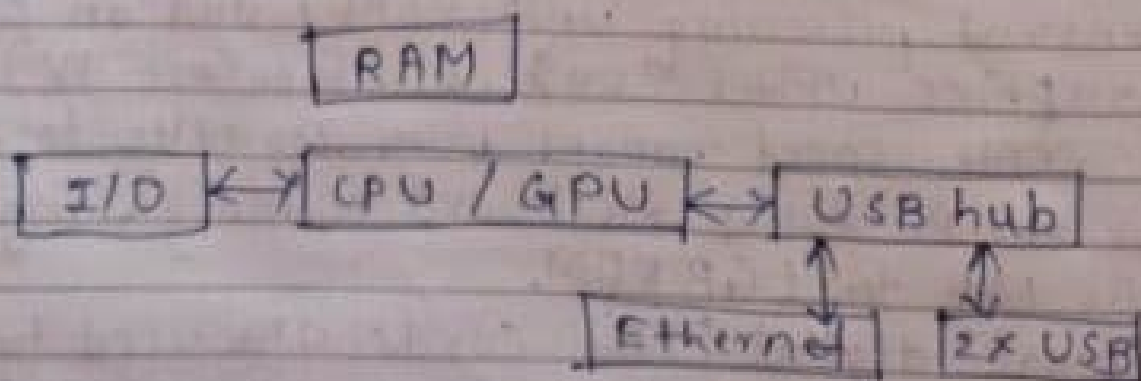 RAM
I/O CPU / GPU USB hub
Ethernet 2x USB